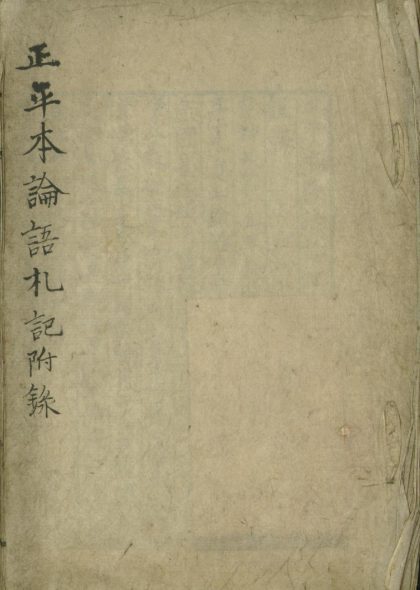 正平本論語札記附錄